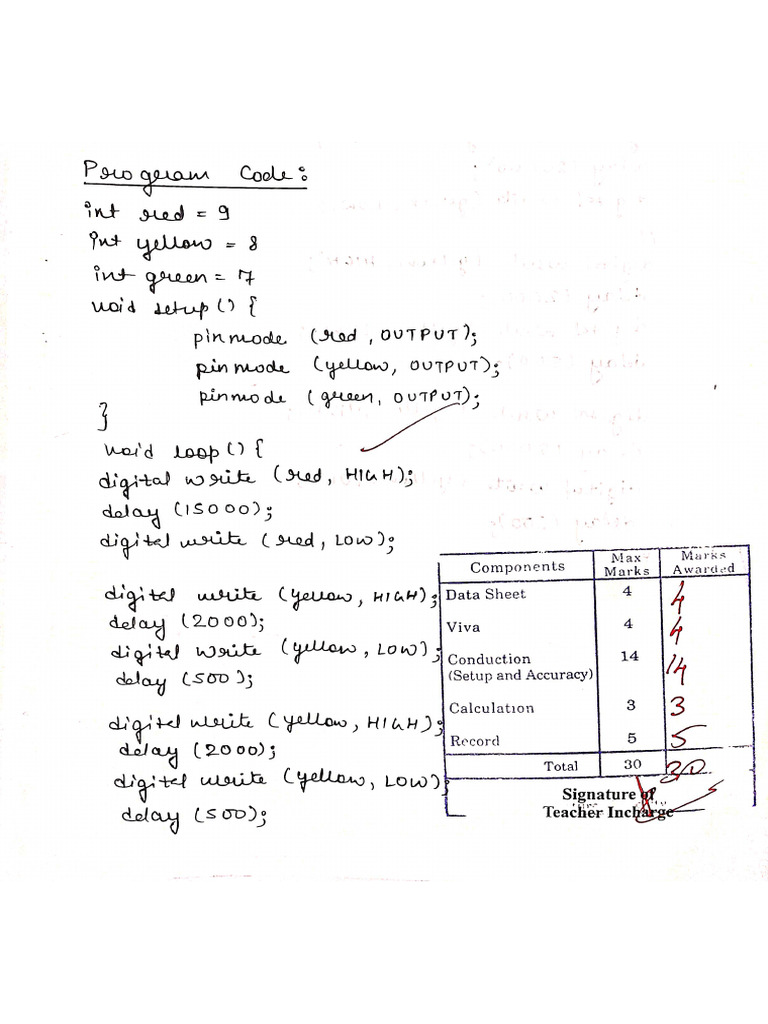 Program Code:
int red = 9
int yellow = 8
int green = 7
void setup() {
pinmode (red, OUTPUT);
pinmode (yellow, OUTPUT);
pinmode (green, OUTPUT);
}
void loop() {
digital write (red, HIGH);
delay (15000);
digital write (red, LOW);
digital write (yellow, HIGH);
delay (2000);
digital write (yellow, LOW);
delay (500);
digital write (yellow, HIGH);
delay (2000);
digital write (yellow, LOW);
delay (500);
Components Max Marks Marks Awarded
Data Sheet 4 4
Viva 4 4
Conduction (Setup and Accuracy) 14 14
Calculation 3 3
Record 5 5
Total 30 30
Signature of
Teacher Incharge